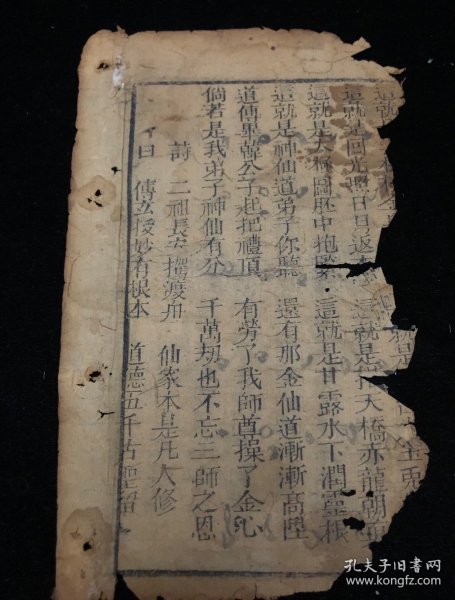 這就
這就是回光照日月返 這就是搭天橋赤龍朝
這就是太極圖胚中抱 這就是甘露水下潤靈根
這就是神仙道弟子你聽 還有那金仙道漸漸高陞
道傳畢韓公子赶把禮頂 有勞了我師尊操了金心
倘若是我弟子神仙有分 千萬刼也不忘二師之恩
詩 二祖長安擺渡舟 仙家本是凡人修
曰 傳玄授妙有根本 道德五千古聖留
孔夫子旧書网
www.kongfz.com